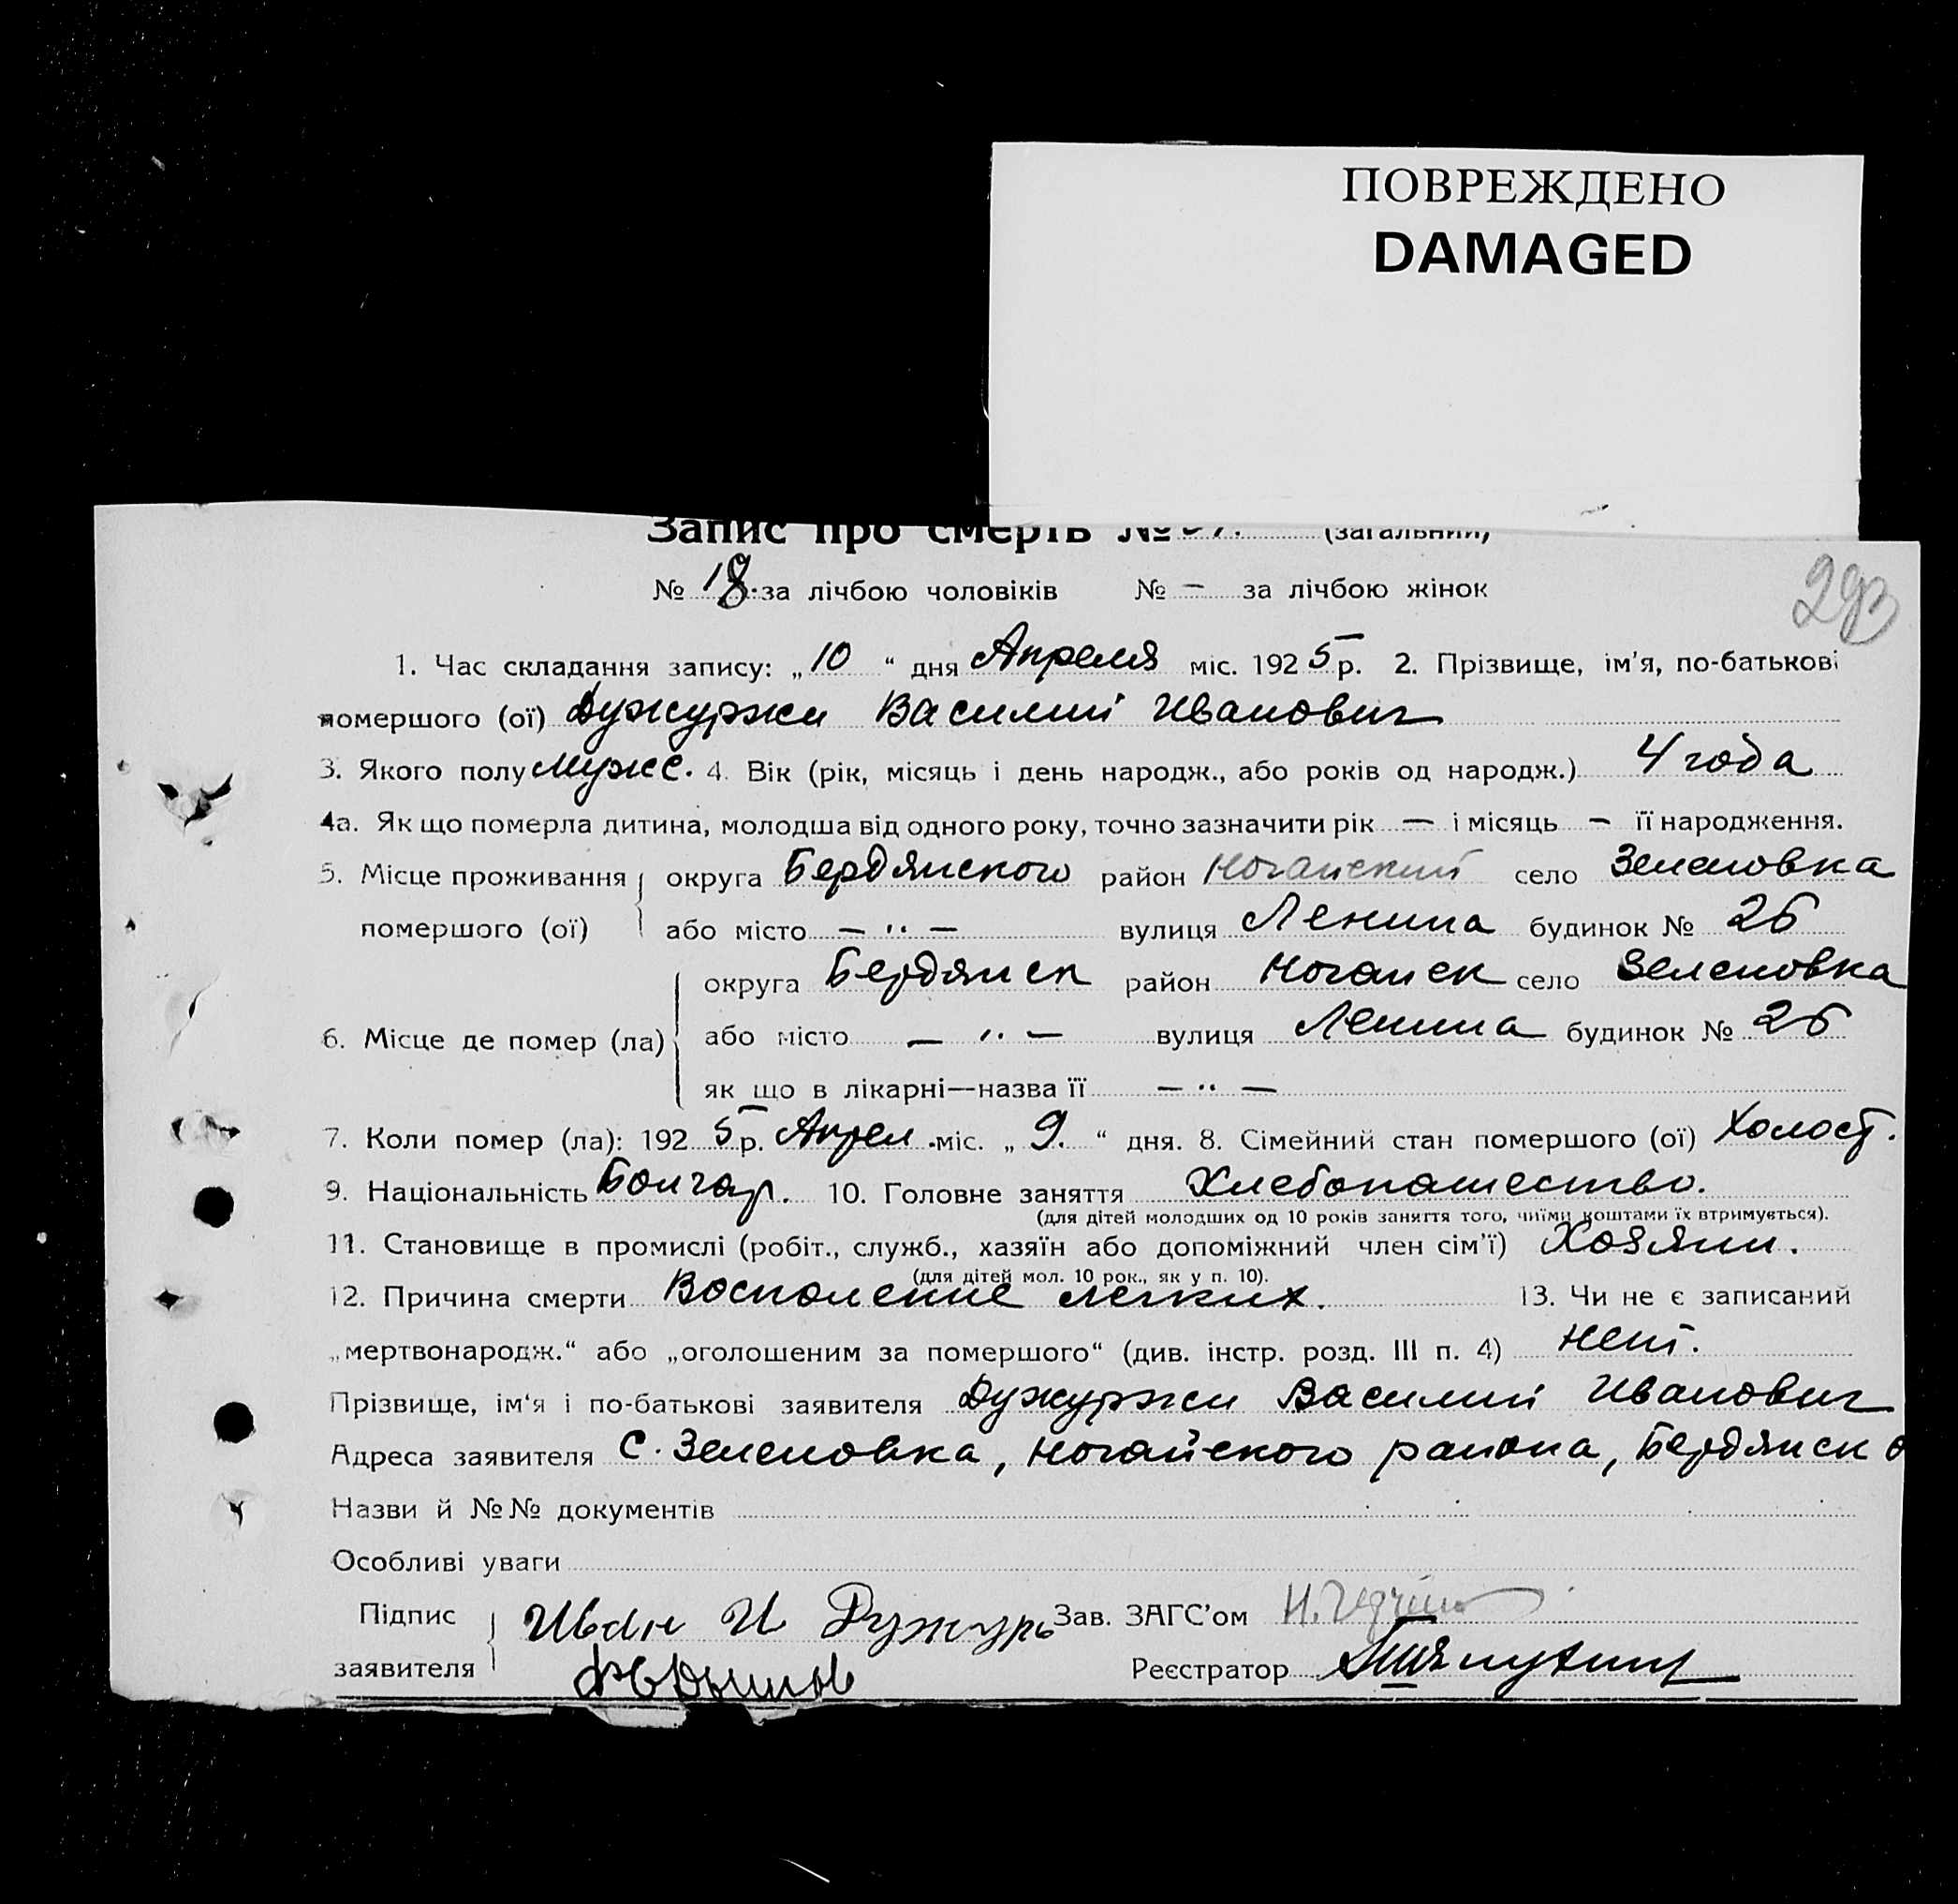 ПОВРЕЖДЕНО
DAMAGED
Запис про смерть № 37. (загальний)
№ 18. за лічбою чоловіків № — за лічбою жінок
293
1. Час складання запису: „10“ дня Апреля міс. 1925 р. 2. Прізвище, ім’я, по-батькові
помершого (ої) Дужуржи Василий Иванович
3. Якого полу мужс. 4. Вік (рік, місяць і день народж., або років од народж.) 4 года
4а. Як що померла дитина, молодша від одного року, точно зазначити рік — і місяць — її народження.
5. Місце проживання округа Бердянского район Ногайский село Зеленовка
помершого (ої) або місто — ·· — вулиця Ленина будинок № 26
округа Бердянск район Ногайск село Зеленовка
6. Місце де помер (ла) або місто — ·· — вулиця Ленина будинок № 26
як що в лікарні—назва її — ·· —
7. Коли помер (ла): 1925 р. Апрел. міс. „9.“ дня. 8. Сімейний стан помершого (ої) Холост.
9. Національність Болгар. 10. Головне заняття Хлебопашество.
(для дітей молодших од 10 років заняття того, чиїми коштами їх втримується).
11. Становище в промислі (робіт., служб., хазяїн або допоміжний член сім’ї) Хозяин.
(для дітей мол. 10 рок., як у п. 10).
12. Причина смерти Воспаление легких. 13. Чи не є записаний
„мертвонародж.“ або „оголошеним за помершого“ (див. інстр. розд. III п. 4) нет.
Прізвище, ім‘я і по-батькові заявителя Дужуржи Василий Иванович
Адреса заявителя С. Зеленовка, Ногайского района, Бердянск о
Назви й №№ документів
Особливі уваги
Підпис Иван И Дужурь Зав. ЗАГС’ом
заявителя Реєстратор